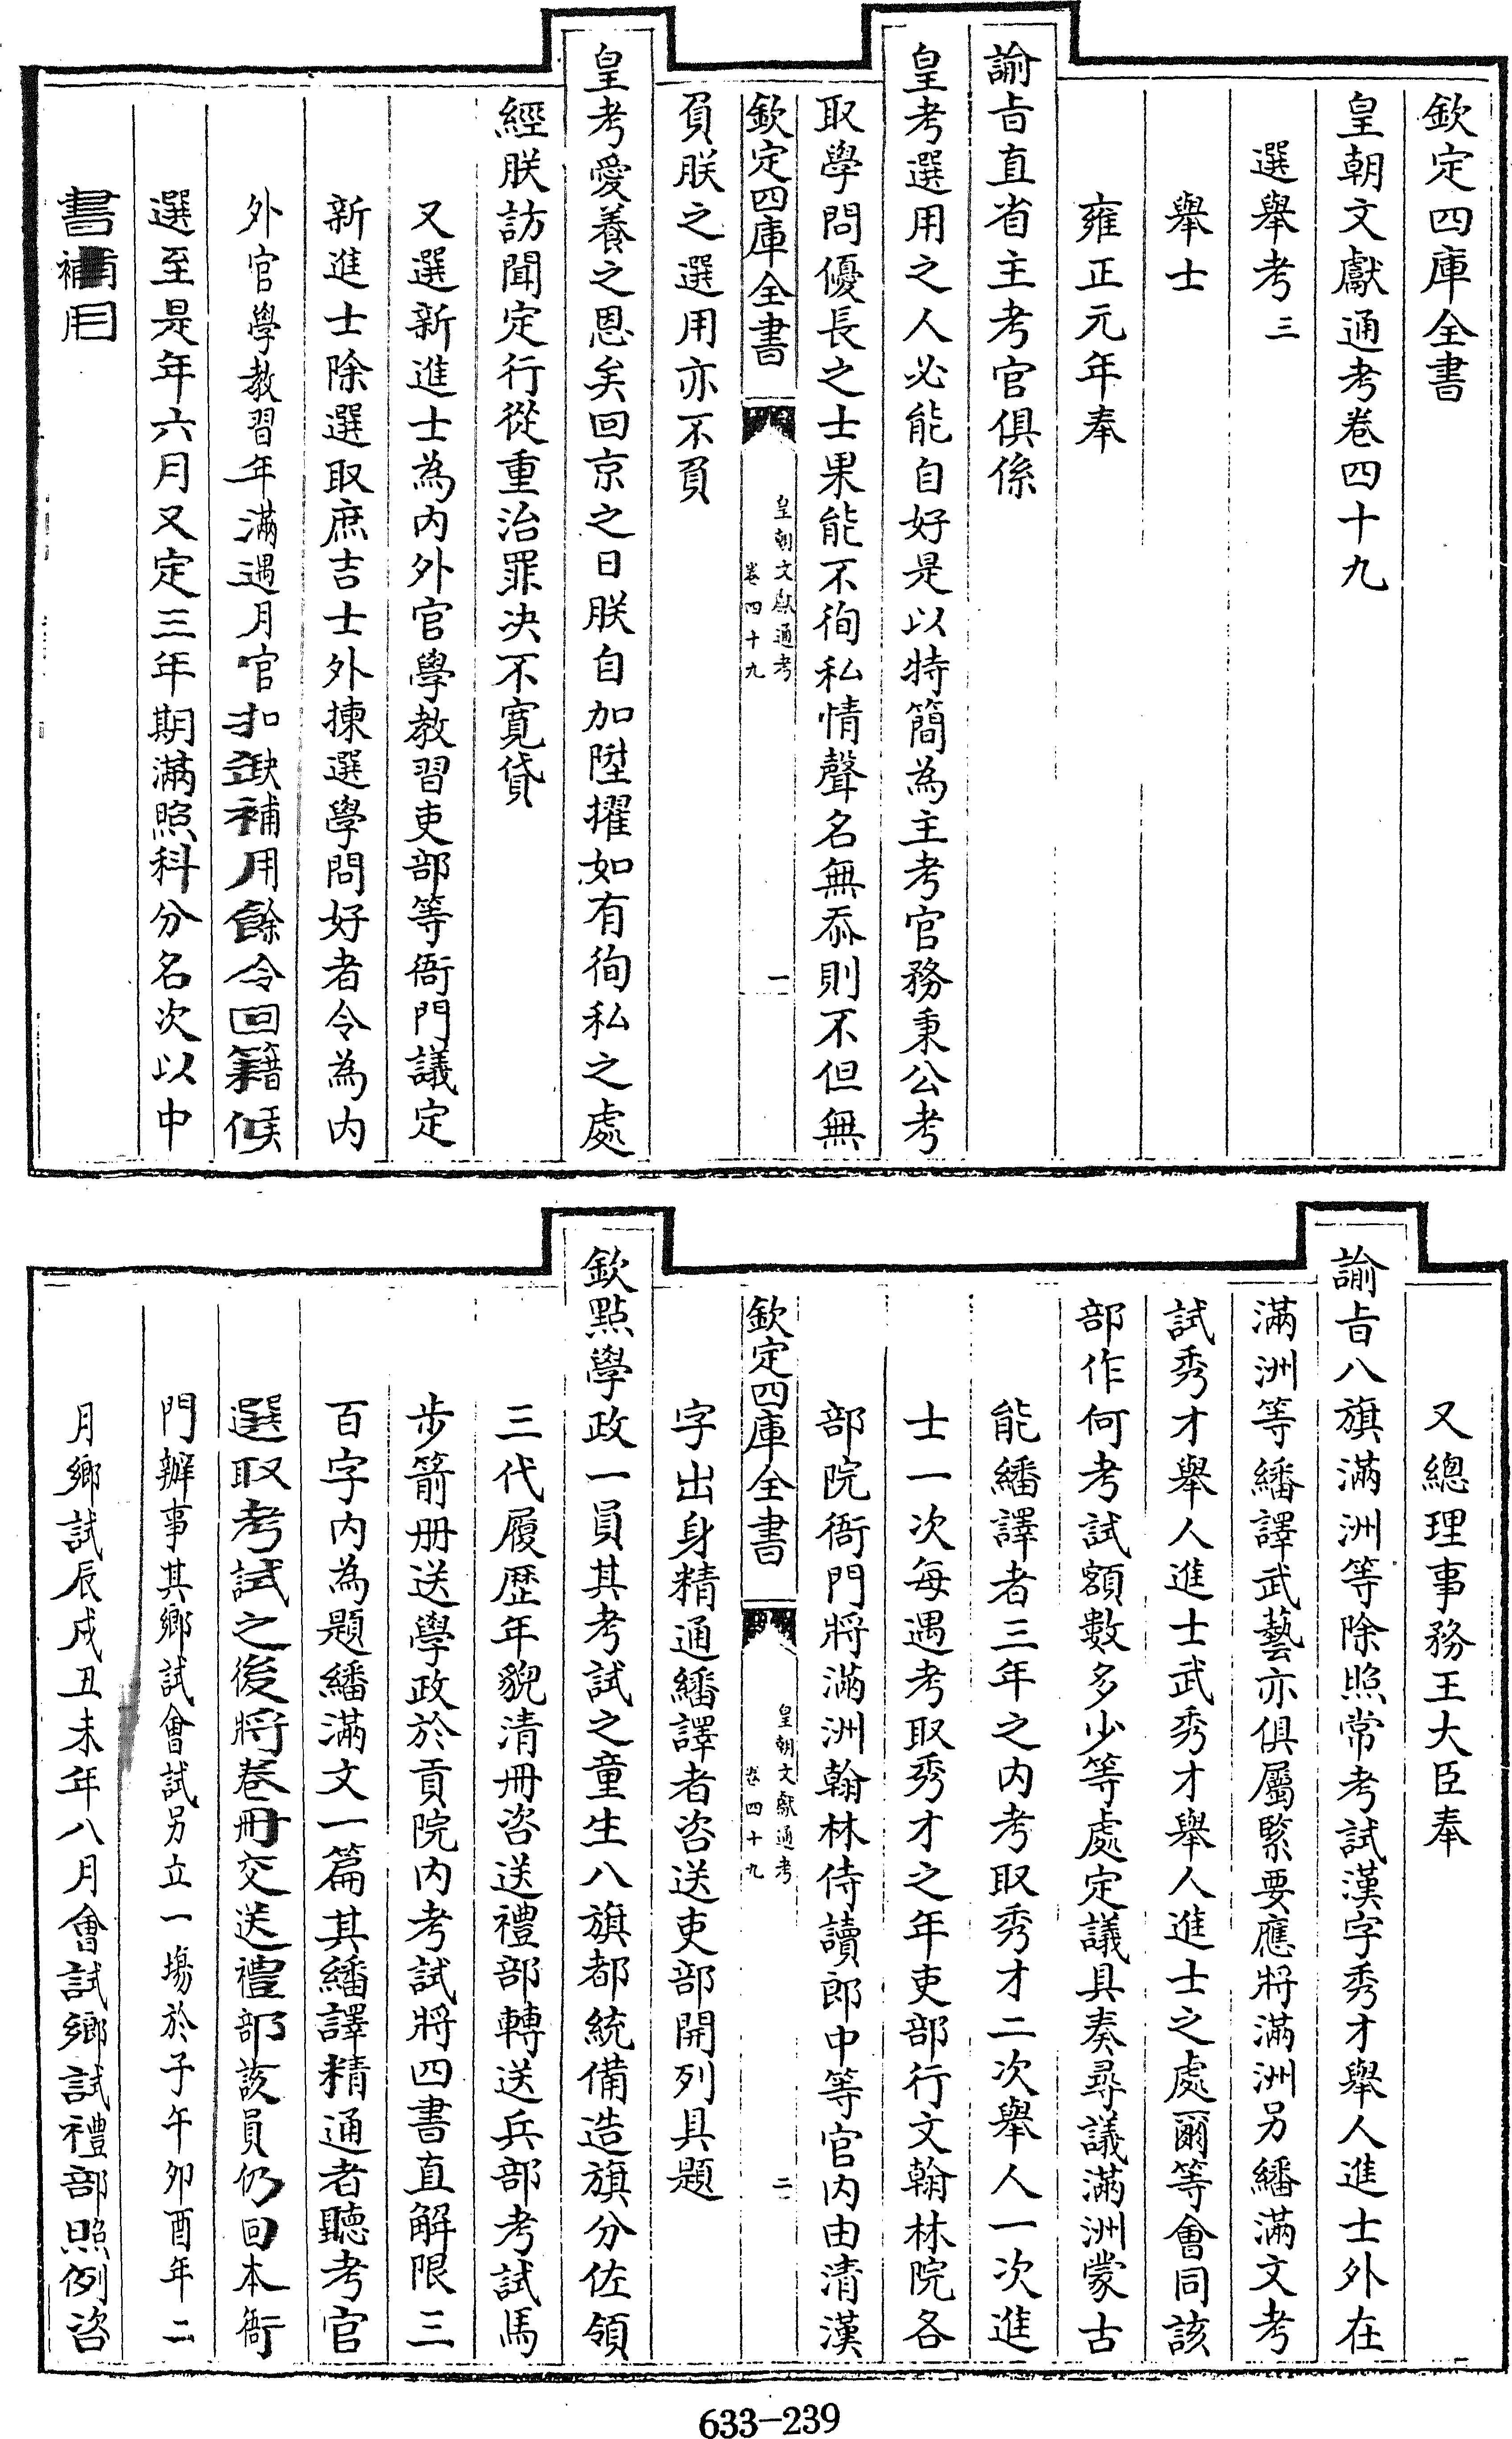 欽定四庫全書
皇朝文獻通考卷四十九
選舉考三
舉士
雍正元年奉
諭旨直省主考官俱係
皇考選用之人必能自好是以特簡為主考官務秉公考
取學問優長之士果能不徇私情聲名無忝則不但無
欽定四庫全書
皇朝文獻通考
卷四十九
一
負朕之選用亦不負
皇考愛養之恩矣回京之日朕自加陞擢如有徇私之處
經朕訪聞定行從重治罪決不寬貸
又選新進士為內外官學教習吏部等衙門議定
新進士除選取庶吉士外揀選學問好者令為內
外官學教習年滿遇月官扣缺補用餘令回籍候
選至是年六月又定三年期滿照科分名次以中
書補用
又總理事務王大臣奉
諭旨八旗滿洲等除照常考試漢字秀才舉人進士外在
滿洲等繙譯武藝亦俱屬緊要應將滿洲另繙滿文考
試秀才舉人進士武秀才舉人進士之處爾等會同該
部作何考試額數多少等處定議具奏尋議滿洲蒙古
能繙譯者三年之內考取秀才二次舉人一次進
士一次每遇考取秀才之年吏部行文翰林院各
部院衙門將滿洲翰林侍讀郎中等官內由清漢
欽定四庫全書
皇朝文獻通考
卷四十九
二
字出身精通繙譯者咨送吏部開列具題
欽點學政一員其考試之童生八旗都統備造旗分佐領
三代履歷年貌清冊咨送禮部轉送兵部考試馬
步箭冊送學政於貢院內考試將四書直解限三
百字內為題繙滿文一篇其繙譯精通者聽考官
選取考試之後將卷冊交送禮部該員仍回本衙
門辦事其鄉試會試另立一場於子午卯酉年二
月鄉試辰戌丑未年八月會試鄉試禮部照例咨
633-239